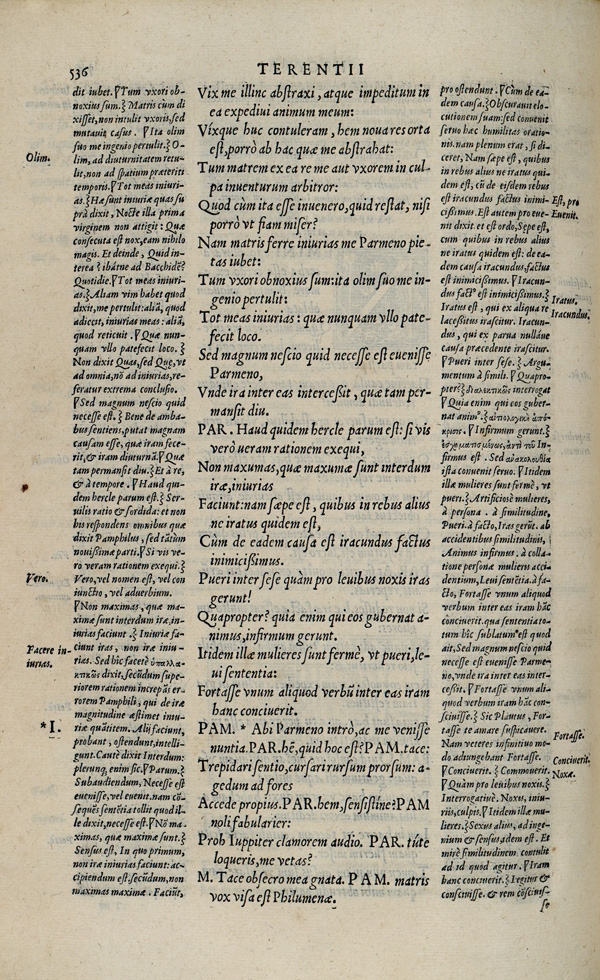 536
TERENTII
dit iubet. Tum vxori ob-
noxius sum. Matris cùm di
xisset, non intulit vxoris, sed
mutauit casus. Ita olim
suo me ingenio pertulit. O-
lim, ad diuturnitatem retu-
lit, non ad spatium præteriti
temporis. Tot meas iniuri-
as. Hæ sunt iniuriæ quas su
prà dixit, Nocte illa prima
virginem non attigit: Quæ
consecuta est nox, eam nihilo
magis. Et deinde, Quid in-
terea? ibátne ad Bacchidē?
Quotidie. Tot meas iniuri-
as. Aliam vim habet quod
dixit, me pertulit: aliā, quod
adiecit, iniurias meas: aliā,
quod reticuit. Quæ nun-
quam vllo patefecit loco.
Non dixit Quas, sed Quę, vt
ad omnia, nō ad iniurias, re-
feratur extrema conclusio.
Sed magnum nescio quid
necesse est. Bene de amba-
bus sentiens, putat magnam
causam esse, quæ iram fece-
rit, & iram diuturnā. Quæ
tam permansit diu. Et à re,
& à tempore. Haud qui-
dem hercle parum est. Ser-
uilis ratio & sordida: et non
his respondens omnibus quæ
dixit Pamphilus, sed tātùm
nouissimæ parti. Si vis ve-
ro veram rationem exequi.
Vero, vel nomen est, vel con
iunctio, vel aduerbium.
Non maximas, quæ ma-
ximæ sunt interdum iræ, in-
iurias faciunt. Iniuriæ fa-
ciunt iras, non iræ iniu-
rias. Sed hîc facete ὑπαλλα-
κτικῶς dixit, secūdum supe-
riorem rationem increpās er-
rorem Pamphili, qui de iræ
magnitudine æstimet iniu-
riæ quātitem. Alij faciunt,
probant, ostendunt, intelli-
gunt. Cautè dixit Interdum:
plerunq; enim sic. Parum.
Subaudiendum, Necesse est
euenisse, vel euenit. nam cō-
sequēs sentētia tollit quod il-
le dixit, necesse est. Nō ma-
ximas, quæ maximæ sunt.
Sensus est, In quo primum,
non iræ iniurias faciunt: ac-
cipiendum est, secūdum, non
maximas maximæ. Faciūt,
Olim.
Vero.
Facere in-
iurias.
*I.
Vix me illinc abstraxi, atque impeditum in
ea expediui animum meum:
Vixque huc contuleram, hem noua res orta
est, porrò ab hac quæ me abstrahat:
Tum matrem ex ea re me aut vxorem in cul-
pa inuenturum arbitror:
Quod cùm ita esse inuenero, quid restat, nisi
porrò vt fiam miser?
Nam matris ferre iniurias me Parmeno pie-
tas iubet:
Tum vxori obnoxius sum: ita olim suo me in-
genio pertulit:
Tot meas iniurias: quæ nunquam vllo pate-
fecit loco.
Sed magnum nescio quid necesse est euenisse
Parmeno,
Vnde ira inter eas intercessit, quæ tam per-
mansit diu.
PAR. Haud quidem hercle parum est: si vis
verò ueram rationem exequi,
Non maxumas, quæ maxumæ sunt interdum
iræ, iniurias
Faciunt: nam sæpe est, quibus in rebus alius
ne iratus quidem est,
Cùm de eadem causa est iracundus factus
inimicissimus.
Pueri inter sese quàm pro leuibus noxis iras
gerunt!
Quapropter? quia enim qui eos gubernat a-
nimus, infirmum gerunt.
Itidem illæ mulieres sunt fermè, vt pueri, le-
ui sententia:
Fortasse vnum aliquod verbū inter eas iram
hanc conciuerit.
PAM. * Abi Parmeno intrò, ac me venisse
nuntia. PAR. hē, quid hoc est? PAM. tace:
Trepidari sentio, cursari rursum prorsum: a-
gedum ad fores
Accede propius. PAR. hem, sensistine? PAM
noli fabularier:
Proh Iuppiter clamorem audio. PAR. túte
loqueris, me vetas?
M. Tace obsecro mea gnata. PAM. matris
vox visa est Philumenæ.
pro ostendunt. Cùm de ea-
dem causa. Obscurauit elo-
cutionem suam: sed conuenit
seruo hæc humilitas oratio-
nis. nam plenum erat, si di-
ceret, Nam sæpe est, quibus
in rebus alius ne iratus qui-
dem est, cū de eisdem rebus
est iracundus factus inimi-
cissimus. Est autem pro eue-
nit dixit. et est ordo, Sepe est,
cum quibus in rebus alius
ne iratus quidem est: de ea-
dem causa iracundus, factus
est inimicissimus. Iracun-
dus fact' est inimicissimus.
Iratus est, qui ex aliqua re
lacessitus irascitur. Iracun-
dus, qui ex parua nullaue
causa præcedente irascitur.
Pueri inter sese. Argu-
mentum à simili. Quapro-
pter? διαλεκτικῶς interrogat
Quia enim qui eos guber-
nat anim'. ἀπολογικὴ ἀπό-
κρισις. Infirmum gerunt.
ἐσχηματισμένως, ἀντὶ τοῦ In-
firmus est. Sed ἀνακολουθία
ista conuenit seruo. Itidem
illæ mulieres sunt fermè, vt
pueri. Artificiosè mulieres,
à persona. à similitudine,
Pueri. à facto, Iras gerūt. ab
accidentibus similitudinis,
Animus infirmus. à colla-
tione personæ mulieris acci-
dentium, Leui sentētia. à fa-
cto, Fortasse vnum aliquod
verbum inter eas iram hāc
conciuerit. qua sententia to-
tum hîc sublatum est quod
ait, Sed magnum nescio quid
necesse est euenisse Parme-
no, vnde ira inter eas inter-
cessit. Fortasse vnum ali-
quod verbum iram hāc con-
sciuisse. Sic Plautus, For-
tasse te amare suspicauere.
Nam veteres infinitiuo mo-
do adiungebant Fortasse.
Conciuerit. Commouerit.
Quàm pro leuibus noxis.
Interrogatiuè. Noxis, iniu-
riis, culpis. Itidem illæ mu-
lieres. Sexus alius, ad inge-
nium & sensus, idem est. Et
mirè similitudinem contulit
ad id quod agitur. Iram
hanc conciuerit. Legitur &
consciuisse. & rem cōsciuis-
se
Est, pro
Euenit.
Iratus.
Iracundus.
Fortasse.
Conciuerit.
Noxæ.